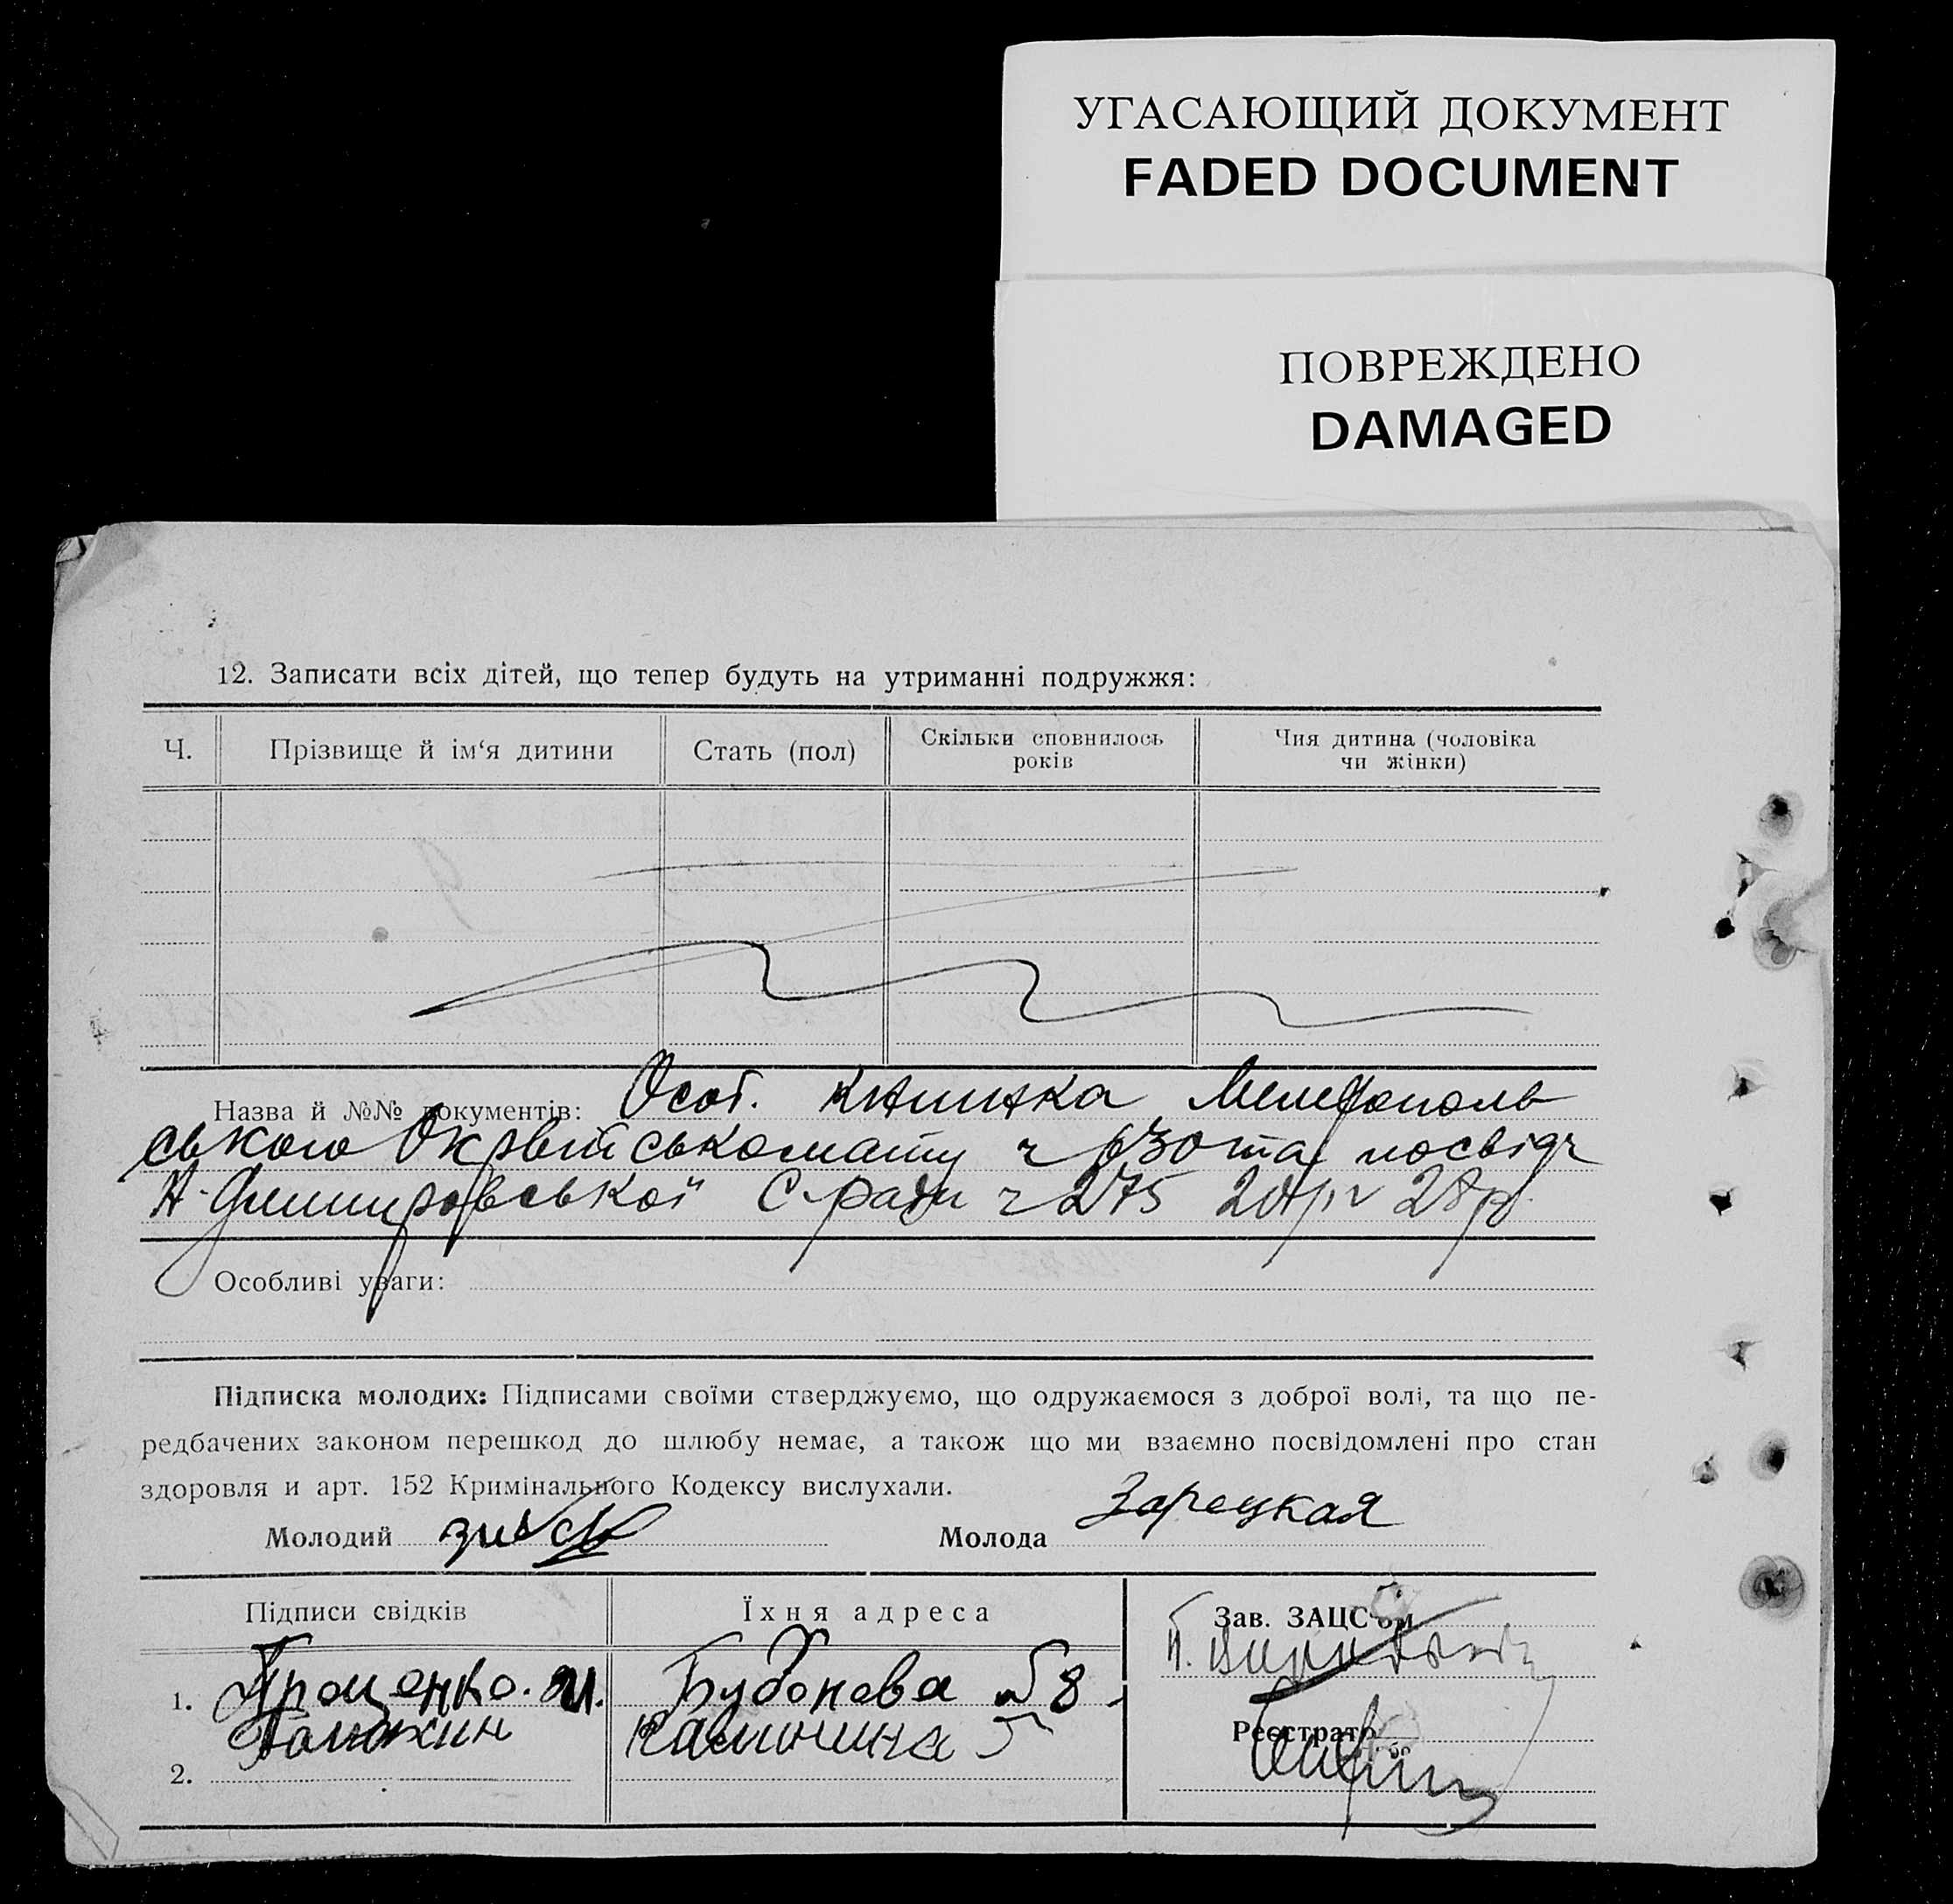 УГАСАЮЩИЙ ДОКУМЕНТ
FADED DOCUMENT
ПОВРЕЖДЕНО
DAMAGED
12. Записати всіх дітей, що тепер будуть на утриманні подружжя:
Ч.
Прізвище й ім‘я дитини
Стать (пол)
Скільки сповнилось
років
Чия дитина (чоловіка
чи жінки)
Назва й №№ документів: Особ. книжка Мелітополь
ського Окрвійськомату ч 630 та посвідч
Н-Димитровської С-ради ч 275 28 р.
Особливі уваги:
Підписка молодих: Підписами своїми стверджуємо, що одружаємося з доброї волі, та що пе-
редбачених законом перешкод до шлюбу немає, а також що ми взаємно посвідомлені про стан
здоровля и арт. 152 Кримінального Кодексу вислухали.
Молодий
Молода Зарецкая
Підписи свідків
Їхня адреса
Зав. ЗАЦС'ом
1. Проценко. И. 8
Калинина 5
2.
Реєстратор